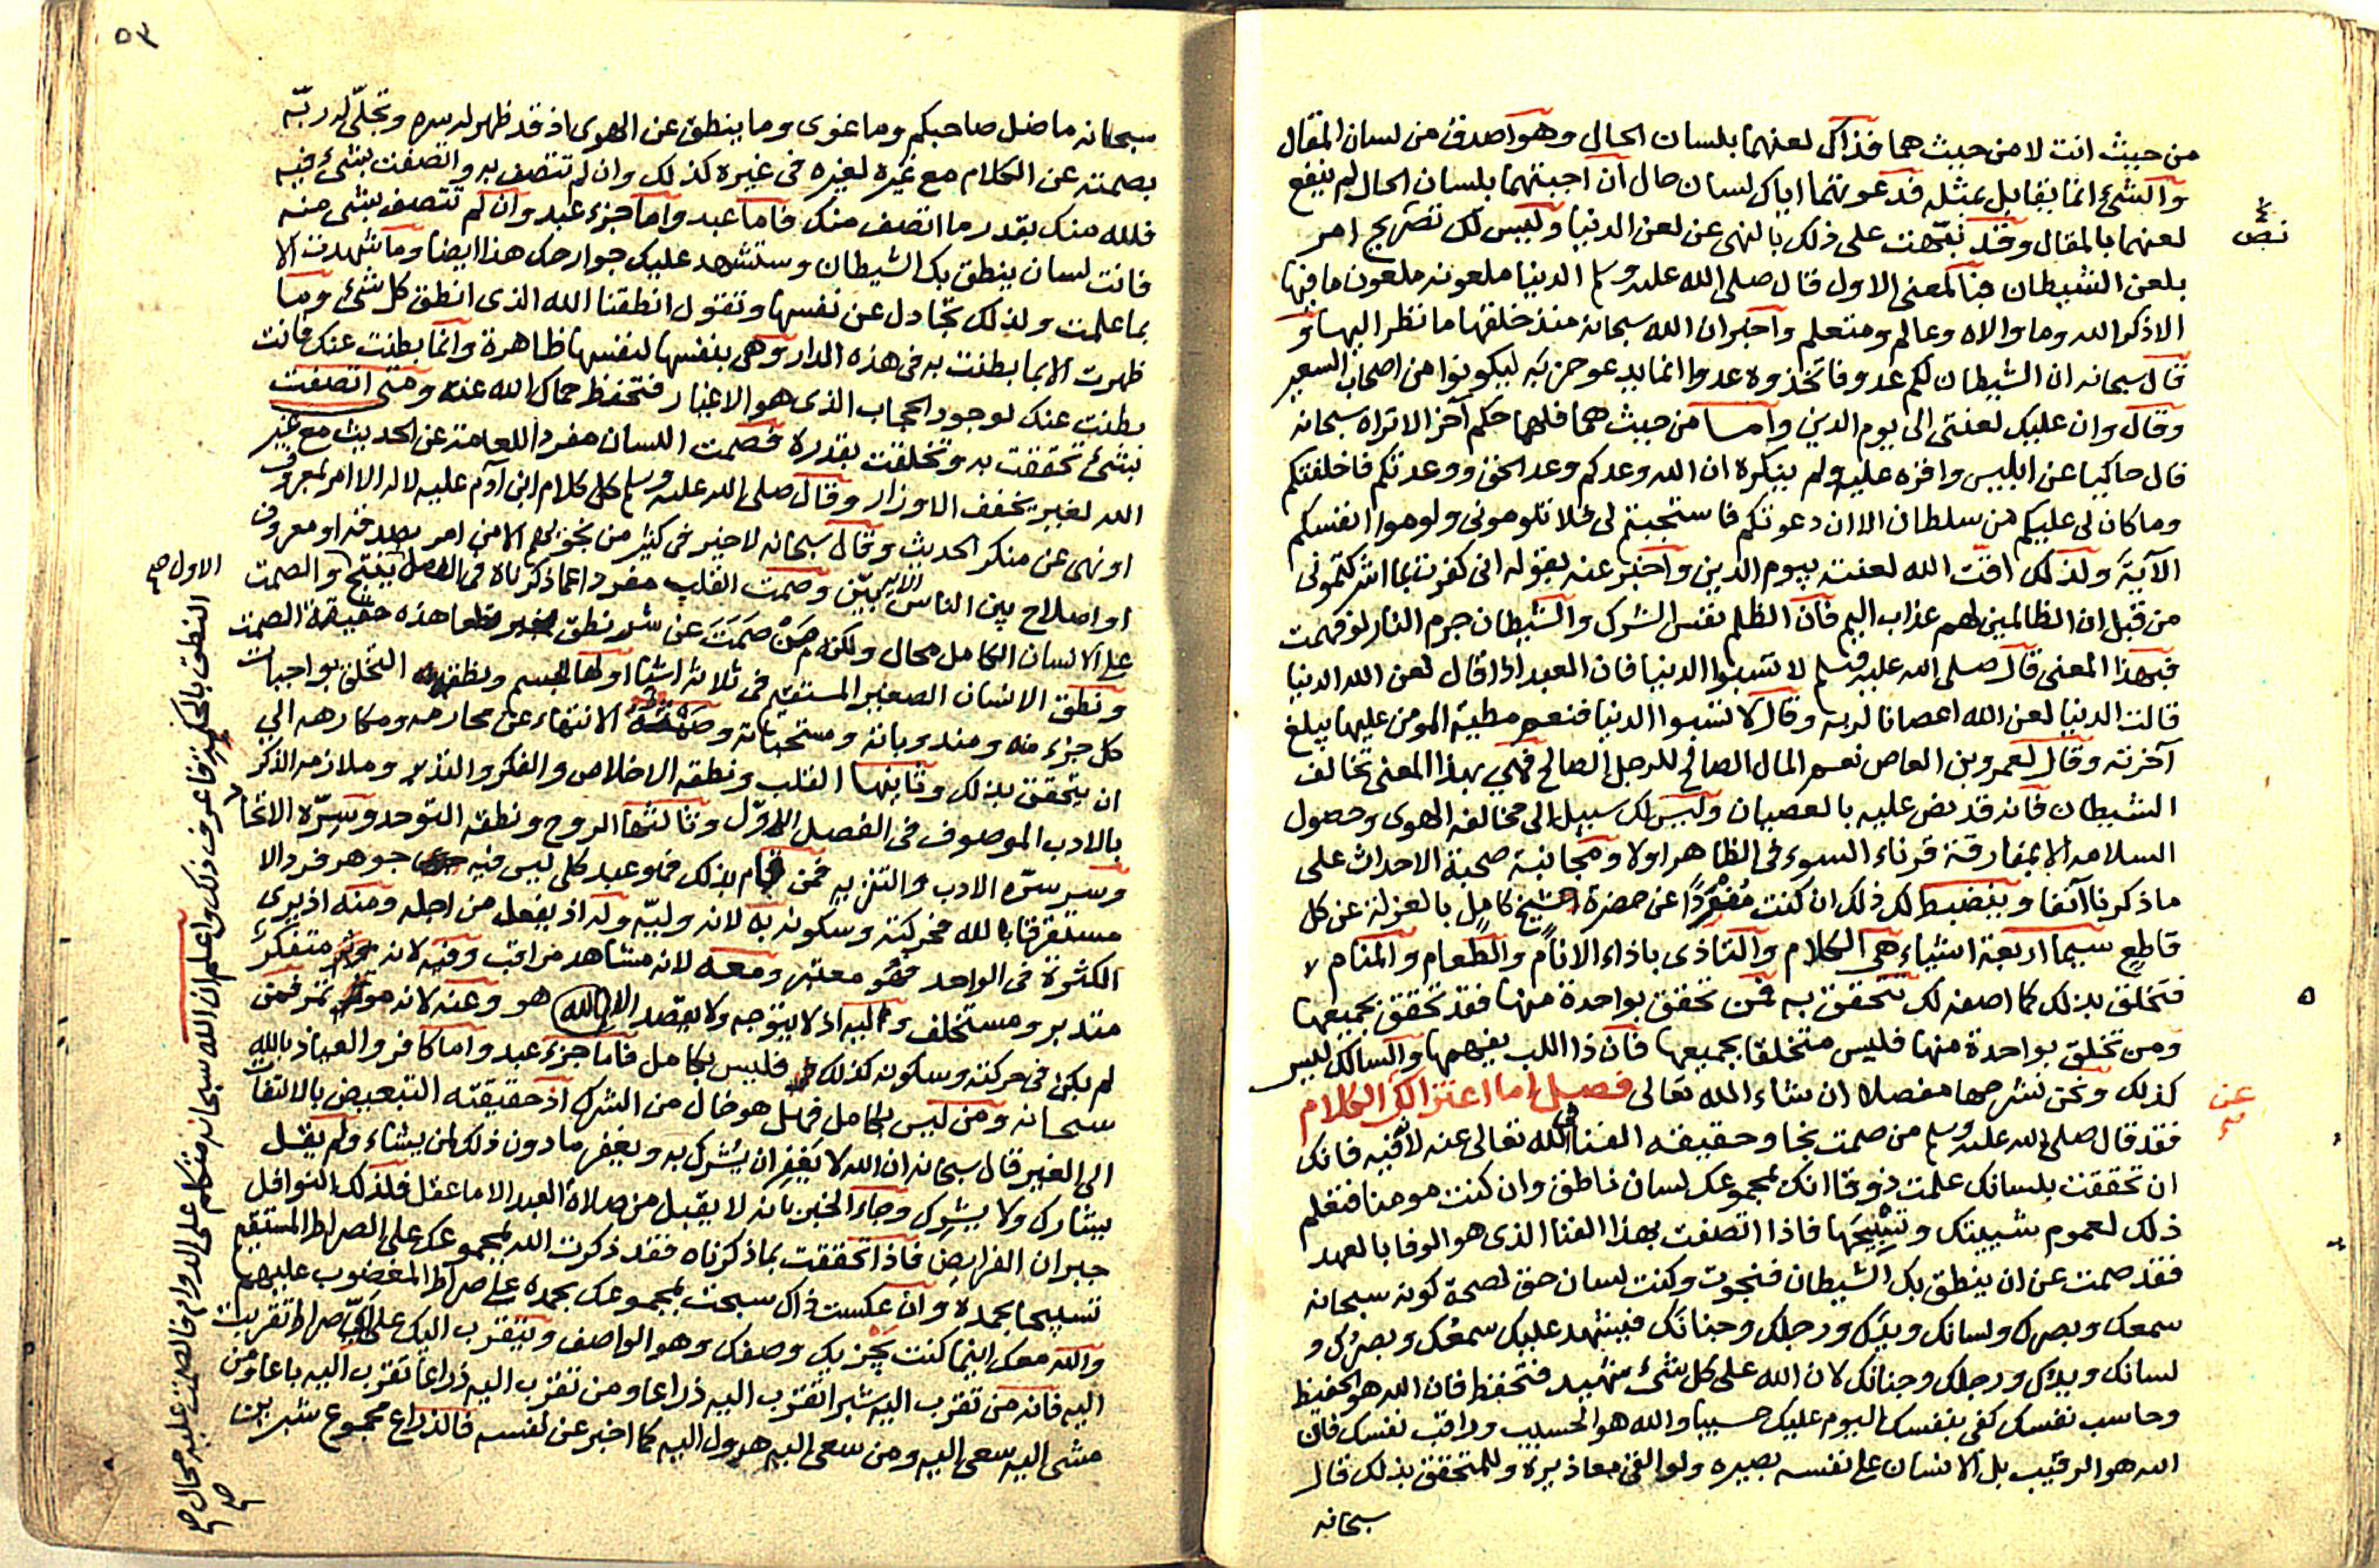 من حيث انت لا من حيث هما فذاك لعنهما بلسان الحال وهو اصدق من لسان المقال
والشئ انما يقابل بمثله فدعوتهما اياك لسان حال ان اجبتهما بلسان الحال لم ينفع
لعنهما بالمقال وقد نبهت على ذلك بالنهى عن لعن الدنيا وليس لك تصريح امر
نص
بلعن الشيطان هنا كمعنى الاول قال صلى الله عليه وسلم الدنيا ملعونه ملعون ما فيها
الا ذكر الله وما والاه وعالم ومتعلم واخبر ان الله سبحانه منذ خلقها ما نظر اليها و
قال سبحانه ان الشيطان لكم عدو فاتخذوه عدوا انما يدعو حزبه ليكونوا من اصحاب السعير
وقال وان عليك لعنتى الى يوم الدين واما من حيث هما فلهما حكم آخر الا تراه سبحانه
قال حاكيا عن ابليس واقره عليه ولم ينكره ان الله وعدكم وعد الحق ووعدتكم فاخلفتكم
وما كان لى عليكم من سلطان الا ان دعوتكم فاستجبتم لى فلا تلومونى ولوموا انفسكم
الآية ولذلك اقت الله لعنته بيوم الدين واخبر عنه بقوله انى كفرت بما اشركتمونى
من قبل ان الظالمين لهم عذاب اليم فان الظلم نفس الشرك والشيطان جرم النار لو فهمت
فبهذا المعنى قال صلى الله عليه وسلم لا تسبوا الدنيا فان العبد اذا قال لعن الله الدنيا
قالت الدنيا لعن الله اعصانا لربه وقال لا تسبوا الدنيا فنعم مطية المومن عليها يبلغ
آخرته وقال لعمرو بن العاص نعم المال الصالح للرجل الصالح فهى بهذا المعنى تخالف
الشيطان فانه قد نص عليه بالعصيان وليس لك سبيل الى مخالفة الهوى وحصول
السلامه الا بمفارقة قرناء السوء فى الظاهر اولا ومجانبة صحبة الاحداث على
ماذكرنا آنفا وينضبط لك ذلك ان كنت مفردا عن حضرة شيخ كامل بالعزلة عن كل
قاطع سيما اربعة اشياء هى الكلام والتاذى باذاء الانام والطعام والمنام
فتخلق بذلك كما اصفه لك تتحقق به فمن تحقق بواحدة منها فقد تحقق بجميعها
ومن تخلق بواحدة منها فليس متخلقا بجميعها فان ذا اللب يفهمها والسالك ليس
كذلك ونحن نشرحها مفصلا ان شاء الله تعالى فصل اما اعتزالك الكلام
عن
فقد قال صلى الله عليه وسلم من صمت نجا وحقيقة الفنا فى الله تعالى عنه لا فيه فانك
ان تحققت بلسانك علمت ذوقا انك بمجموعك لسان ناطق وان كنت مومنا فتعلم
ذلك لعموم شيئيتك وتسبيحها فاذا اتصفت بهذا الفنا الذى هو الوفا بالعهد
فقد صمت عن ان ينطق بك الشيطان فنجوت وكنت لسان حق لصحة كونه سبحانه
سمعك وبصرك ولسانك ويدك ورجلك وجنانك فيشهد عليك سمعك وبصرك و
لسانك ويدك ورجلك وجنانك لان الله على كل شئ شهيد فتحفظ فان الله هو الحفيظ
وحاسب نفسك كفى بنفسك اليوم عليك حسيبا والله هو الحسيب وراقب نفسك فان
الله هو الرقيب بل الانسان على نفسه بصيره ولو القى معاذيره وللمتحقق بذلك قال
سبحانه
٥٣
سبحانه ما ضل صاحبكم وما غوى وما ينطق عن الهوى اذ قد ظهر له سره وتجلى له ربه
بصمته عن الكلام مع غيره لغيره فى غيره كذلك وان لم تتصف به واتصفت بشئ فيه
فلله منك بقدر ما اتصف منك فاما عبد واما جزء عبد وان لم تتصف بشى منه
فانت لسان ينطق بك الشيطان وستشهد عليك جوارحك هذا ايضا وما شهدت الا
بما علمت ولذلك تجادل عن نفسها وتقول انطقنا الله الذى انطق كل شئ وما
ظهرت الا بما بطنت به فى هذه الدار وهى بنفسها لنفسها ظاهرة وانما بطنت عنك فانت
بطنت عنك لوجود الحجاب الذى هو الاغيار فتحفظ حماك الله عنه ومتى اتصفت
بشئ تحققت به وتخلقت بقدره فصمت اللسان مفردا للعامة عن الحديث مع غير
الله لغير يخفف الاوزار وقال صلى الله عليه وسلم كل كلام ابن آدم عليه لا له الا امر بمعروف
او نهى عن منكر الحديث وقال سبحانه لا خير فى كثير من نجويهم الا من امر بصدقة او معروف
او اصلاح بين الناس وصمت القلب مفردا عما ذكرناه فى الفصل ينتج والصمت
على الانسان الكامل محال ولكنه من صمت عن شئ نطق هذه حقيقة الصمت
ونطق الانسان الصغير المستقيم فى ثلاثة اشيا اولها الجسم ونطقه التخلق بواجبات
كل جزء منه ومندوباته ومستحباته وصمته الانتهاء عن محارمه ومكارهه الى
ان يتحقق بذلك وثانيها القلب ونطقه الاخلاص والفكر والتدبر وملازمه الذكر
بالادب الموصوف فى الفصل الاول وثالثها الروح ونطقه التوحد وسره الاتحاد
وسر سره الادب والتنزيه فمن قام بذلك فهو عبد كلى ليس فيه جوهر فرد الا
مستغرقا بالله فحركته وسكونه به لانه وليه وله اذ يفعل من اجله ومنه اذ يرى
الكثرة فى الواحد فهو معلته ومعه لانه مشاهد مراقب وفيه لانه متفكر
متدبر ومستخلف واليه اذ لا يتوجه ولا يقصد الا الى الله هو وعنه لانه فمن
لم يكن فى حركته وسكونه كذلك فليس بكامل فاما جزء عبد واما كافر والعياذ بالله
سبحانه ومن ليس بكامل فهل هو خال من الشرك اذ حقيقته التبعيض بالالتفات
الى الغير قال سبحانه ان الله لا يغفر ان يشرك به ويغفر ما دون ذلك لمن يشاء ولم يقل
يشارك ولا يشرك وجاء الخبر بانه لا يقبل من صلاة العبد الا ما عقل فلذلك النوافل
جبران الفرايض فاذا تحققت بما ذكرناه فقد ذكرت الله بمجموعك على الصراط المستقيم
تسبيحا بحمده وان عكست ذاك سبحت بمجموعك بحمده على صراط المغضوب عليهم
والله معك اينما كنت يجزيك وصفك وهو الواصف ويتقرب اليك على اى صراط تقربت
اليه فانه من تقرب اليه شبرا تقرب اليه ذراعا ومن تقرب اليه ذراعا تقرب اليه باعا ومن
مشى اليه سعى اليه ومن سعى اليه هرول اليه كما اخبر عن نفسه فالذراع مجموع شبرين
الاول صح
النطق بالحكمة فاعرف ذلك واعلم ان الله سبحانه متكلم على الدوام فالصمت عليه محال صح